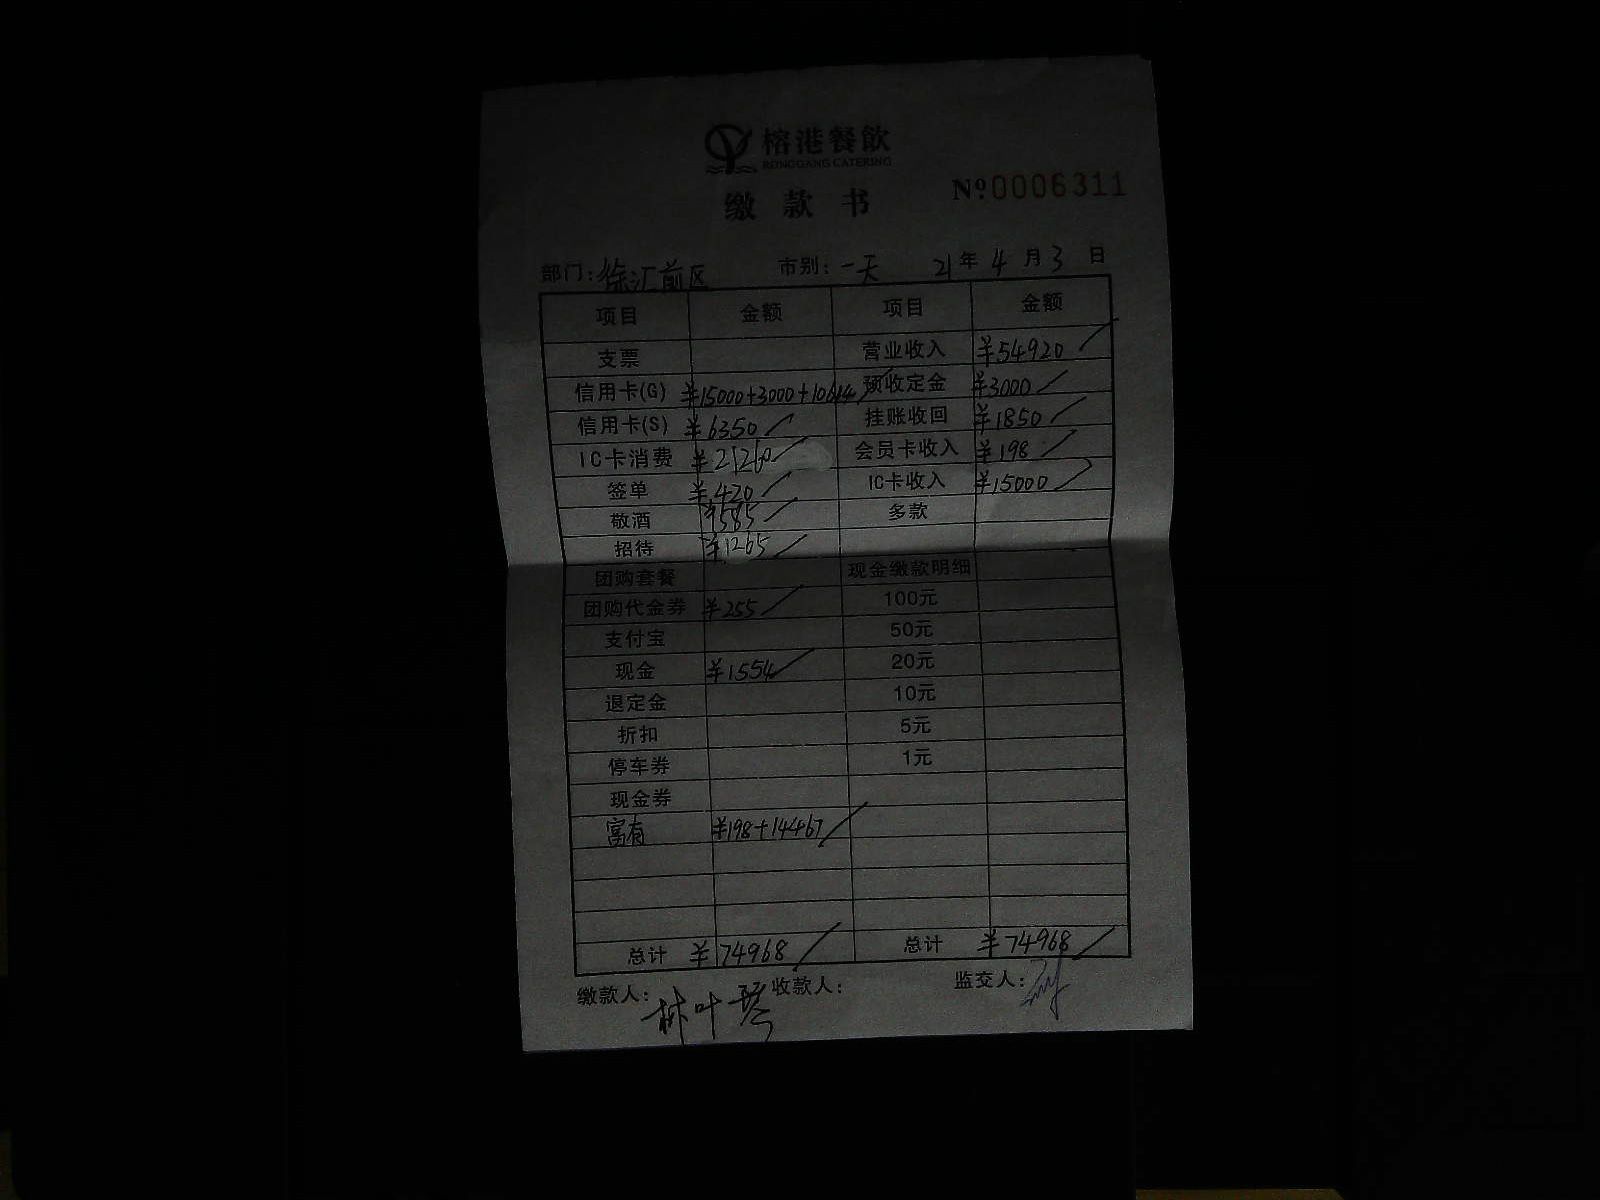 榕港餐飲
RONGGANG CATERING
缴款书
Nº.0006311
部门:徐汇前区 市别:一天 21年4月3日
项目 金额 项目 金额
支票 营业收入 ¥54920
信用卡(G) ¥15000+3000+10614 预收定金 ¥3000
信用卡(S) ¥6350 挂账收回 ¥1850
IC卡消费 ¥21260 会员卡收入 ¥198
签单 ¥420 IC卡收入 ¥15000
敬酒 ¥585 多款
招待 ¥1265
团购套餐 现金缴款明细
团购代金券 ¥255 100元
支付宝 50元
现金 ¥1554 20元
退定金 10元
折扣 5元
停车券 1元
现金券
富有 ¥198+14467
总计 ¥74968 总计 ¥74968
缴款人:林叶琴 收款人: 监交人: